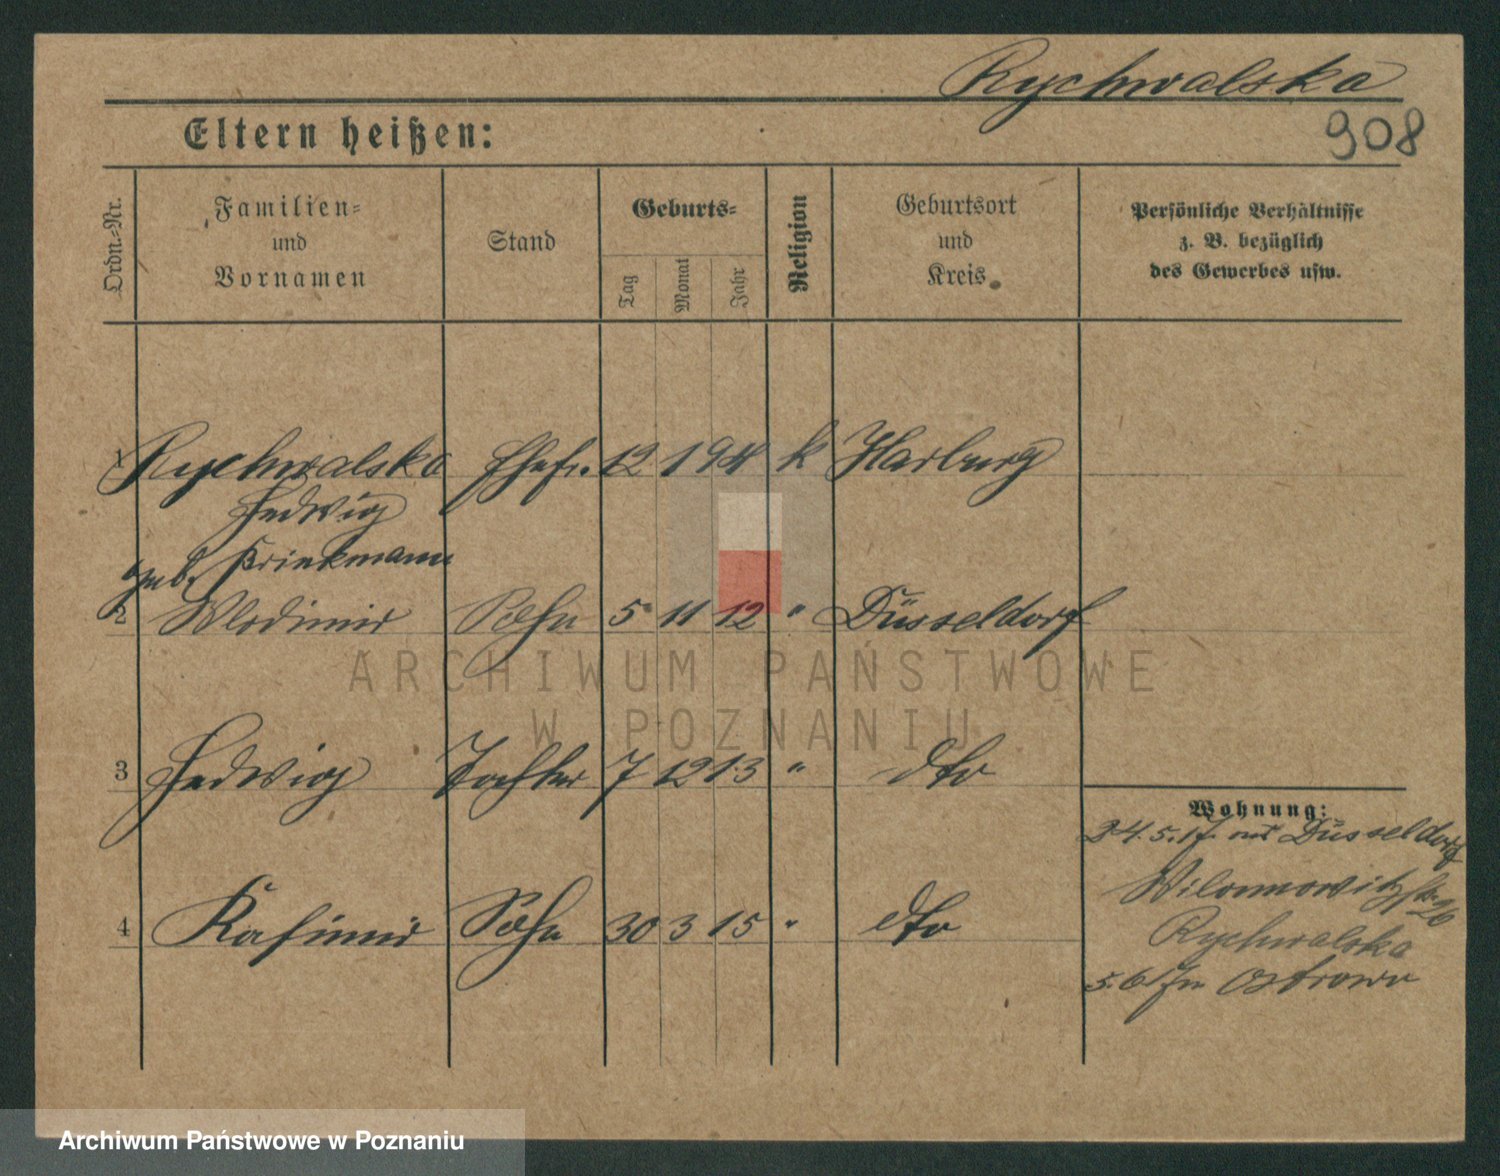 Rychwalska
908
Eltern heißen:
Ordn.-Nr.
Familien-
und
Vornamen
Stand
Geburts-
Tag
Monat
Jahr
Religion
Geburtsort
und
Kreis
Persönliche Verhältnisse
z. B. bezüglich
des Gewerbes usw.
1 Rychwalska Ehefr. 12 1 94 k Harburg
Hedwig
geb. Brinkmann
2 Wlodimir Sohn 5 11 12 " Düsseldorf
3 Hedwig Tochter 7 12 13 " dto
4 Kasimir Sohn 30 3 15 " dto
Wohnung:
24.5.17. Düsseldorf
26
Rychwalska
5.6.17 Ostrowo
ARCHIWUM PAŃSTWOWE
W POZNANIU
Archiwum Państwowe w Poznaniu